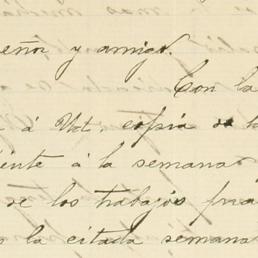 eñor y amigo.
Con la
á Vd, copia de l
iente á la semana
de los trabajos pra
la citada semana